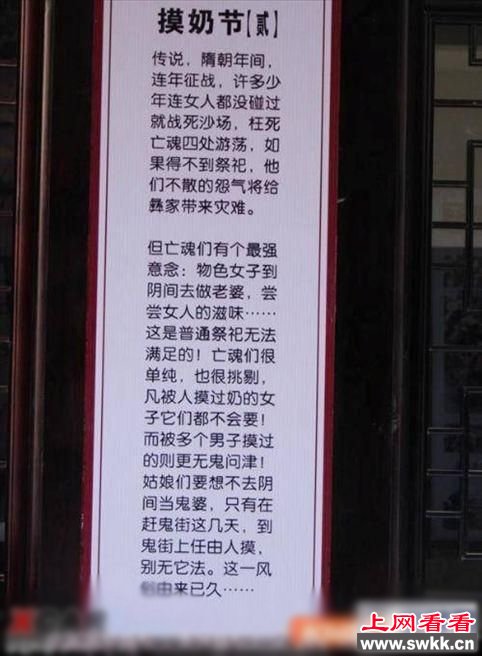 摸奶节【贰】
传说，隋朝年间，
连年征战，许多少
年连女人都没碰过
就战死沙场，枉死
亡魂四处游荡，如
果得不到祭祀，他
们不散的怨气将给
彝家带来灾难。
但亡魂们有个最强
意念：物色女子到
阴间去做老婆，尝
尝女人的滋味……
这是普通祭祀无法
满足的！亡魂们很
单纯，也很挑剔，
凡被人摸过奶的女
子它们都不会要！
而被多个男子摸过
的则更无鬼问津！
姑娘们要想不去阴
间当鬼婆，只有在
赶鬼街这几天，到
鬼街上任由人摸，
别无它法。这一风
俗由来已久……
上网看看
www.swkk.cn